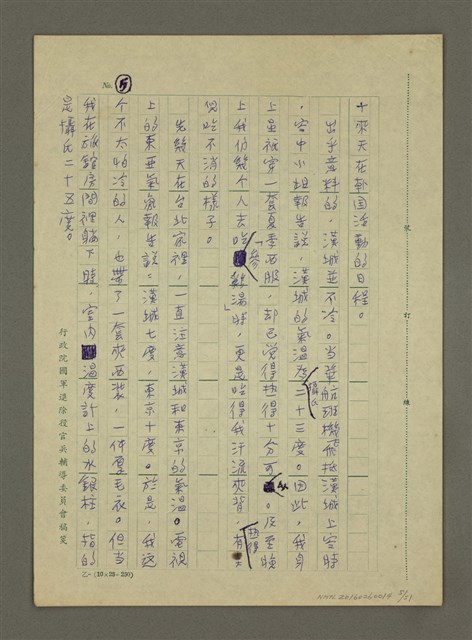 No. 5
十來天在韓国活動的日程。
出乎意料的，漢城並不冷。当華航班機飛抵漢城上空時
，空中小姐報告說，漢城的氣温為攝氏二十三度。因此，我身
上虽祇穿一套夏季西服，却已觉得热得十分可以。及至晚
上我们幾个人去吃「人參雞湯」時，更是吃得我汗流夾背，有
熱得
似吃不消的樣子。
先幾天在台北家裡，一直注意漢城和東京的氣温。電視
上的東亚氣象報告說，漢城七度，東京十度。於是，我这
个不太怕冷的人，也帶了一套夾西装，一件厚毛衣。但当
我在旅館房间裡躺下時，室内温度計上的水銀柱，指的
是攝氏二十五度。
號
訂
線
行政院國軍退除役官兵輔導委員會稿箋
乙-(10×25=250)
NMTL20160260014 5/21